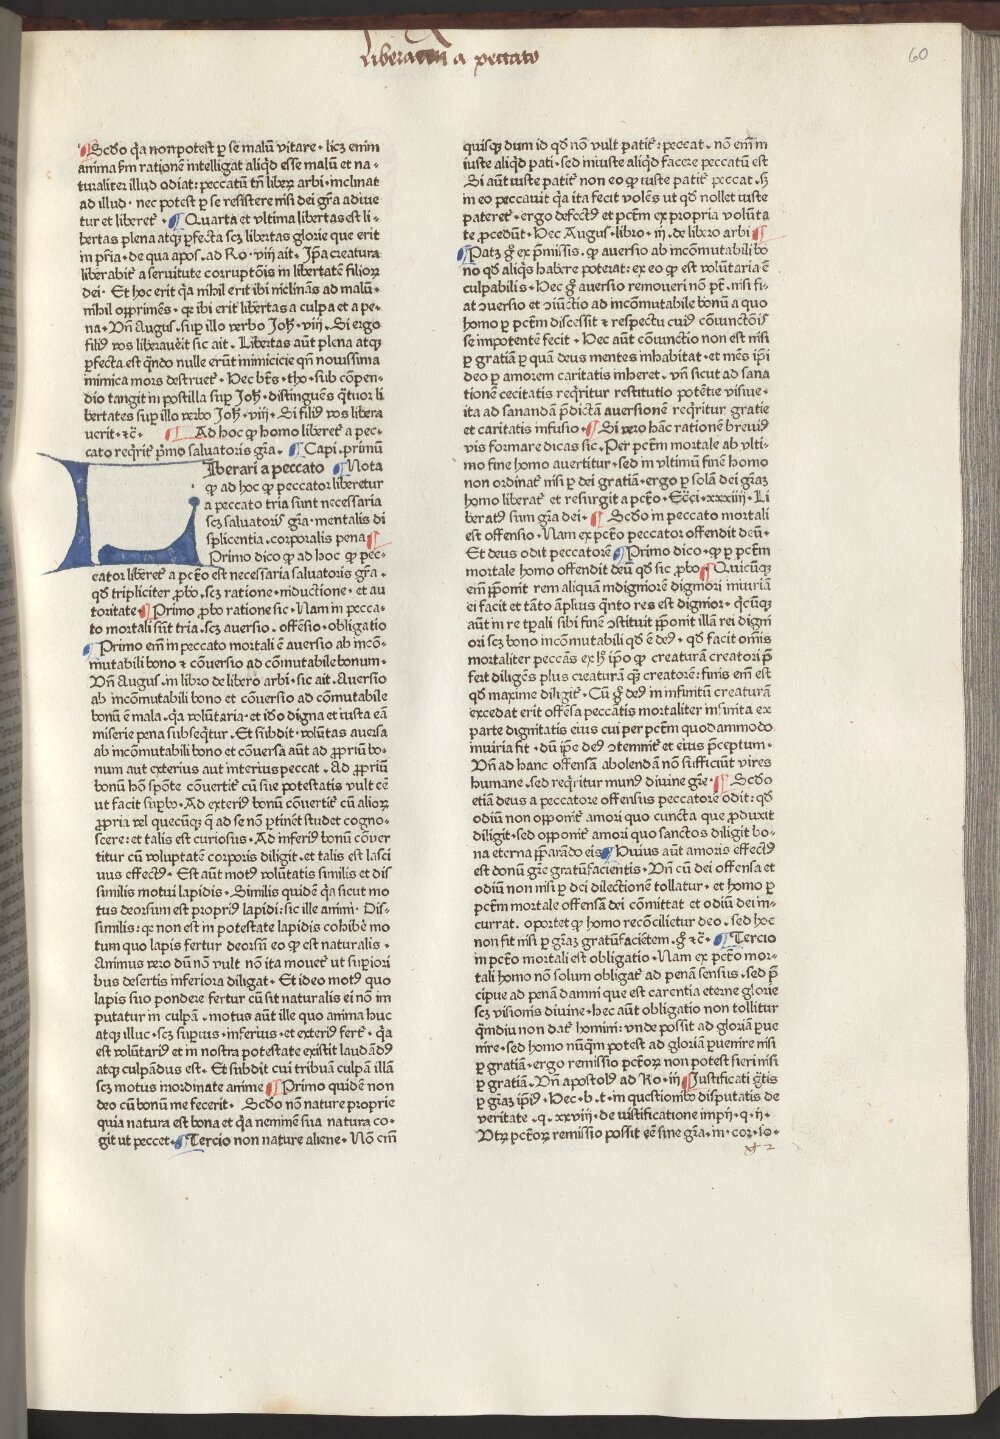 Liberari a peccato
60
Scďo q̇a non potest ꝑ se malū vitare · licꝫ enim
anima ẜm rationē intelligat aliqď esse malū et na-
turaliter illud odiat: peccatū tn̄ liberꝫ arbi · inclinat
ad illud · nec potest ꝑ se resistere nisi dei gr̄a adiuue
tur et liberet᷑ · Quarta et vltima libertas est li-
bertas plena atqꝫ ꝑfecta scꝫ libertas glorie que erit
in pr̄ia · de qua apos. ad Ro · viij ait . Ip̄a creatura
liberabit᷑ a seruitute corruptōis in libertatē filioꝝ
dei · Et hoc erit q̇a nihil erit ibi inclinās ad malū ·
nihil opprimēs · qꝛ ibi erit libertas a culpa et a pe-
na · Vn̄ Augus̄ . suꝑ illo verbo Joh̄ · viij . Si ergo
filiꝰ vos liberauerit sic ait . Libertas aūt plena atqꝫ
ꝑfecta est qn̄do nulle erūt inimicicie qn̄ nouissima
inimica mors destruet᷑ · Hec bt̄s · tho · sub cōpen-
dio tangit in postilla suꝑ Joh̄ · distinguēs q̇tuor li
bertates suꝑ illo verbo Joh̄ · viij · Si filiꝰ vos libera
uerit · ⁊c̄ · Ad hoc ꝙ homo liberet᷑ a pec-
cato req̇rit᷑ p̄mo saluatoris gr̄a . Capi . primū
Liberari a peccato Nota
ꝙ ad hoc ꝙ peccator liberetur
a peccato tria sunt necessaria
scꝫ saluatoris gr̄a · mentalis di
splicentia . corporalis pena
Primo dico ꝙ ad hoc ꝙ pec-
cator liberet᷑ a pct̄o est necessaria saluatoris gr̄a .
qď tripliciter ꝓbo . scꝫ ratione · inductione · et au
toritate · Primo ꝓbo ratione sic · Nam in pecca-
to mortali sūnt tria . scꝫ auersio . offensio · obligatio
Primo em̄ in peccato mortali ē auersio ab incō-
mutabili bono ⁊ cōuersio ad cōmutabile bonum ·
Vn̄ Augus . in libro de libero arbi · sic ait . Auersio
ab incōmutabili bono et cōuersio ad cōmutabile
bonū ē mala . q̇a volūtaria · et iďo digna et iusta eā
miserie pena subseq̄tur . Et subdit · volūtas auersa
ab incōmutabili bono et cōuersa aūt ad ꝓpriū bo-
num aut exterius aut interius peccat . Ad ꝓpriū
bonū hō spōte cōuertit᷑ cū sue potestatis vult cē
ut facit suꝑbꝰ · Ad exteriꝰ bonū cōuertit᷑ cū alioꝝ
ꝓpria vel quecūqꝫ q̄ ad se nō ꝑtinēt studet cogno-
scere : et talis est curiosus · Ad inferiꝰ bonū cōuer
titur cū voluptatē corporis diligit . et talis est lasci
uus effectꝰ · Est aūt motꝰ volūtatis similis et dis
similis motui lapidis · Similis quidē q̇a sicut mo
tus deorsum est propriꝰ lapidi : sic ille animi · Dis-
similis : qꝛ non est in potestate lapidis cohibē mo
tum quo lapis fertur deorsū eo ꝙ est naturalis ·
Animus vero dū nō vult nō ita mouet᷑ ut suꝑiori
bus desertis inferiora diligat · Et ideo motꝰ quo
lapis suo pondere fertur cū sit naturalis ei nō im
putatur in culpā . motus aūt ille quo anima huc
atqꝫ illuc · scꝫ suꝑius · inferius · et exteriꝰ fert᷑ · q̇a
est volūtariꝰ et in nostra potestate existit laudādꝰ
atqꝫ culpādus est . Et subdit cui tribuā culpā illā
scꝫ motus inordinate anime Primo quidē non
deo cū bonū me fecerit · Scďo nō nature proprie
quia natura est bona et q̇a neminē sua natura co-
git ut peccet · Tercio non nature aliene · Nō em̄
quisqꝫ dum id qď nō vult patit᷑ : peccat · nō em̄ in
iuste aliqď pati · sed iniuste aliqď facere peccatū est
Si aūt iuste patit᷑ non eo ꝙ iuste patit᷑ peccat . ꜩ
in eo peccauit q̇a ita fecit volēs ut qď nollet iuste
pateret᷑ · ergo defectꝰ et pct̄m ex propria volūta
te ꝓcedūt · Hec Augus · libro · iij . de libro arbi
Patꝫ g̊ ex p̄missis . ꝙ auersio ab incōmutabili bo
no qď aliq̇s habere poterat : ex eo ꝙ est volūtaria ē
culpabilis · Hec g̊ auersio remoueri non pt̄ . nisi fi-
at ꝯuersio et ꝯiūctio ad incōmutabile bonū a quo
homo ꝑ pct̄m discessit ⁊ respectu cuiꝰ cōiunctōis
se impotentē fecit · Hec aūt cōiunctio non est nisi
ꝑ gratiā ꝑ quā deus mentes inhabitat · et mēs ip̄i
deo ꝑ amorem caritatis inheret . vn̄ sicut ad sana
tionē cecitatis req̇ritur restitutio potētie visiue ·
ita ad sanandā p̄dictā auersionē req̇ritur gratie
et caritatis infusio · Si vero hāc rationē breuiꝰ
vis formare dicas sic . Per pct̄m mortale ab vlti-
mo fine homo auertitur · sed in vltimū finē homo
non ordinat᷑ nisi ꝑ dei gratiā · ergo ꝑ solā dei gr̄aꝫ
homo liberat᷑ et resurgit a pct̄o · Ecc̄i · xxxiiij · Li
beratꝰ sum gr̄a dei · Scďo in peccato mortali
est offensio · Nam ex pct̄o peccator offendit deū ·
Et deus odit peccatorē Primo dico · ꝙ ꝑ pct̄m
mortale homo offendit deū qď sic ꝓbo Quicūqꝫ
em̄ p̄ponit rem aliquā indigniorē digniori iniuriā
ei facit et tāto āplius q̇nto res est dignior · q̇cūqꝫ
aūt in re tꝑali sibi finē ꝯstituit p̄ponit illā rei digni
ori scꝫ bono incōmutabili qď ē deꝰ · qď facit om̄is
mortaliter peccās ex ꜩ ip̄o ꝙ creaturā creatori p̄
fert diligēs plus creaturā q̄ꝫ creatorē : finis em̄ est
qď maxime diligit᷑ · Cū g̊ deꝰ in infinitū creaturā
excedat erit offēsa peccātis mortaliter infinita ex
parte dignitatis eius cui per pct̄m quodammodo
iniuria fit · dū ip̄e deꝰ ꝯtemnit᷑ et eius p̄ceptum ·
Vn̄ ad hanc offensā abolendā nō sufficiūt vires
humane . sed req̇ritur munꝰ diuine gr̄e · Scďo
etiā deus a peccatore offensus peccatorē odit : qď
odiū non opponit᷑ amori quo cuncta que ꝓduxit
diligit · sed opponit᷑ amori quo sanctos diligit bo-
na eterna p̄parādo eis Huius aūt amoris effectꝰ
est donū gr̄e gratūfacientis · Vn̄ cū dei offensa et
odiū non nisi ꝑ dei dilectionē tollatur · et homo ꝑ
pct̄m mortale offensā dei cōmittat et odiū dei in-
currat . oportet ꝙ homo recōcilietur deo . sed hoc
non fit nisi ꝑ gr̄aꝫ gratūfaciētem . g̊ ⁊c̄ · Tercio
in pct̄o mortali est obligatio · Nam ex pct̄o mor-
tali homo nō solum obligat᷑ ad penā sensus . sed p̄
cipue ad penā damni que est carentia eterne glorie
scꝫ visionis diuine · hec aūt obligatio non tollitur
q̄mdiu non dat᷑ homini : vnde possit ad gloriā ꝑue
nire · sed homo nūq̄m potest ad gloriā ꝑuenire nisi
ꝑ gratiā · ergo remissio pct̄oꝝ non potest fieri nisi
ꝑ gratiā . Vn̄ apostolꝰ ad Ro · iij Justificati g̊tis
ꝑ gr̄aꝫ ip̄iꝰ · Hec · b . t · in questionibꝰ disputatis de
veritate . q . xxviij · de iustificatione impij · q · ij ·
Vtꝝ pct̄oꝝ remissio possit eē sine gr̄a . in · cor · io ·